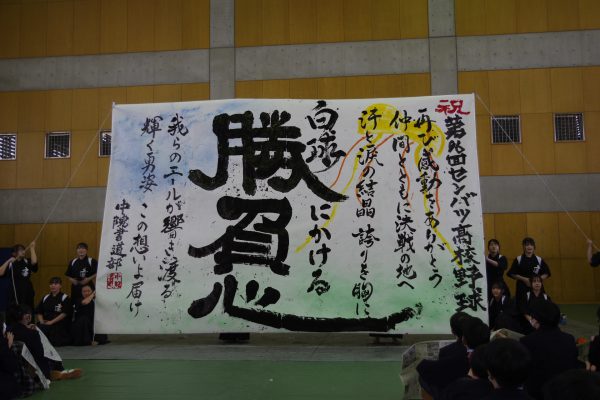 祝 第九四回センバツ高校野球
再び感動をありがとう
仲間とともに決戦の地へ
汗と涙の結晶 誇りを胸に
白球にかける
勝負心
我らのエールよ響き渡る
輝く勇姿 この想いよ届け
書道部